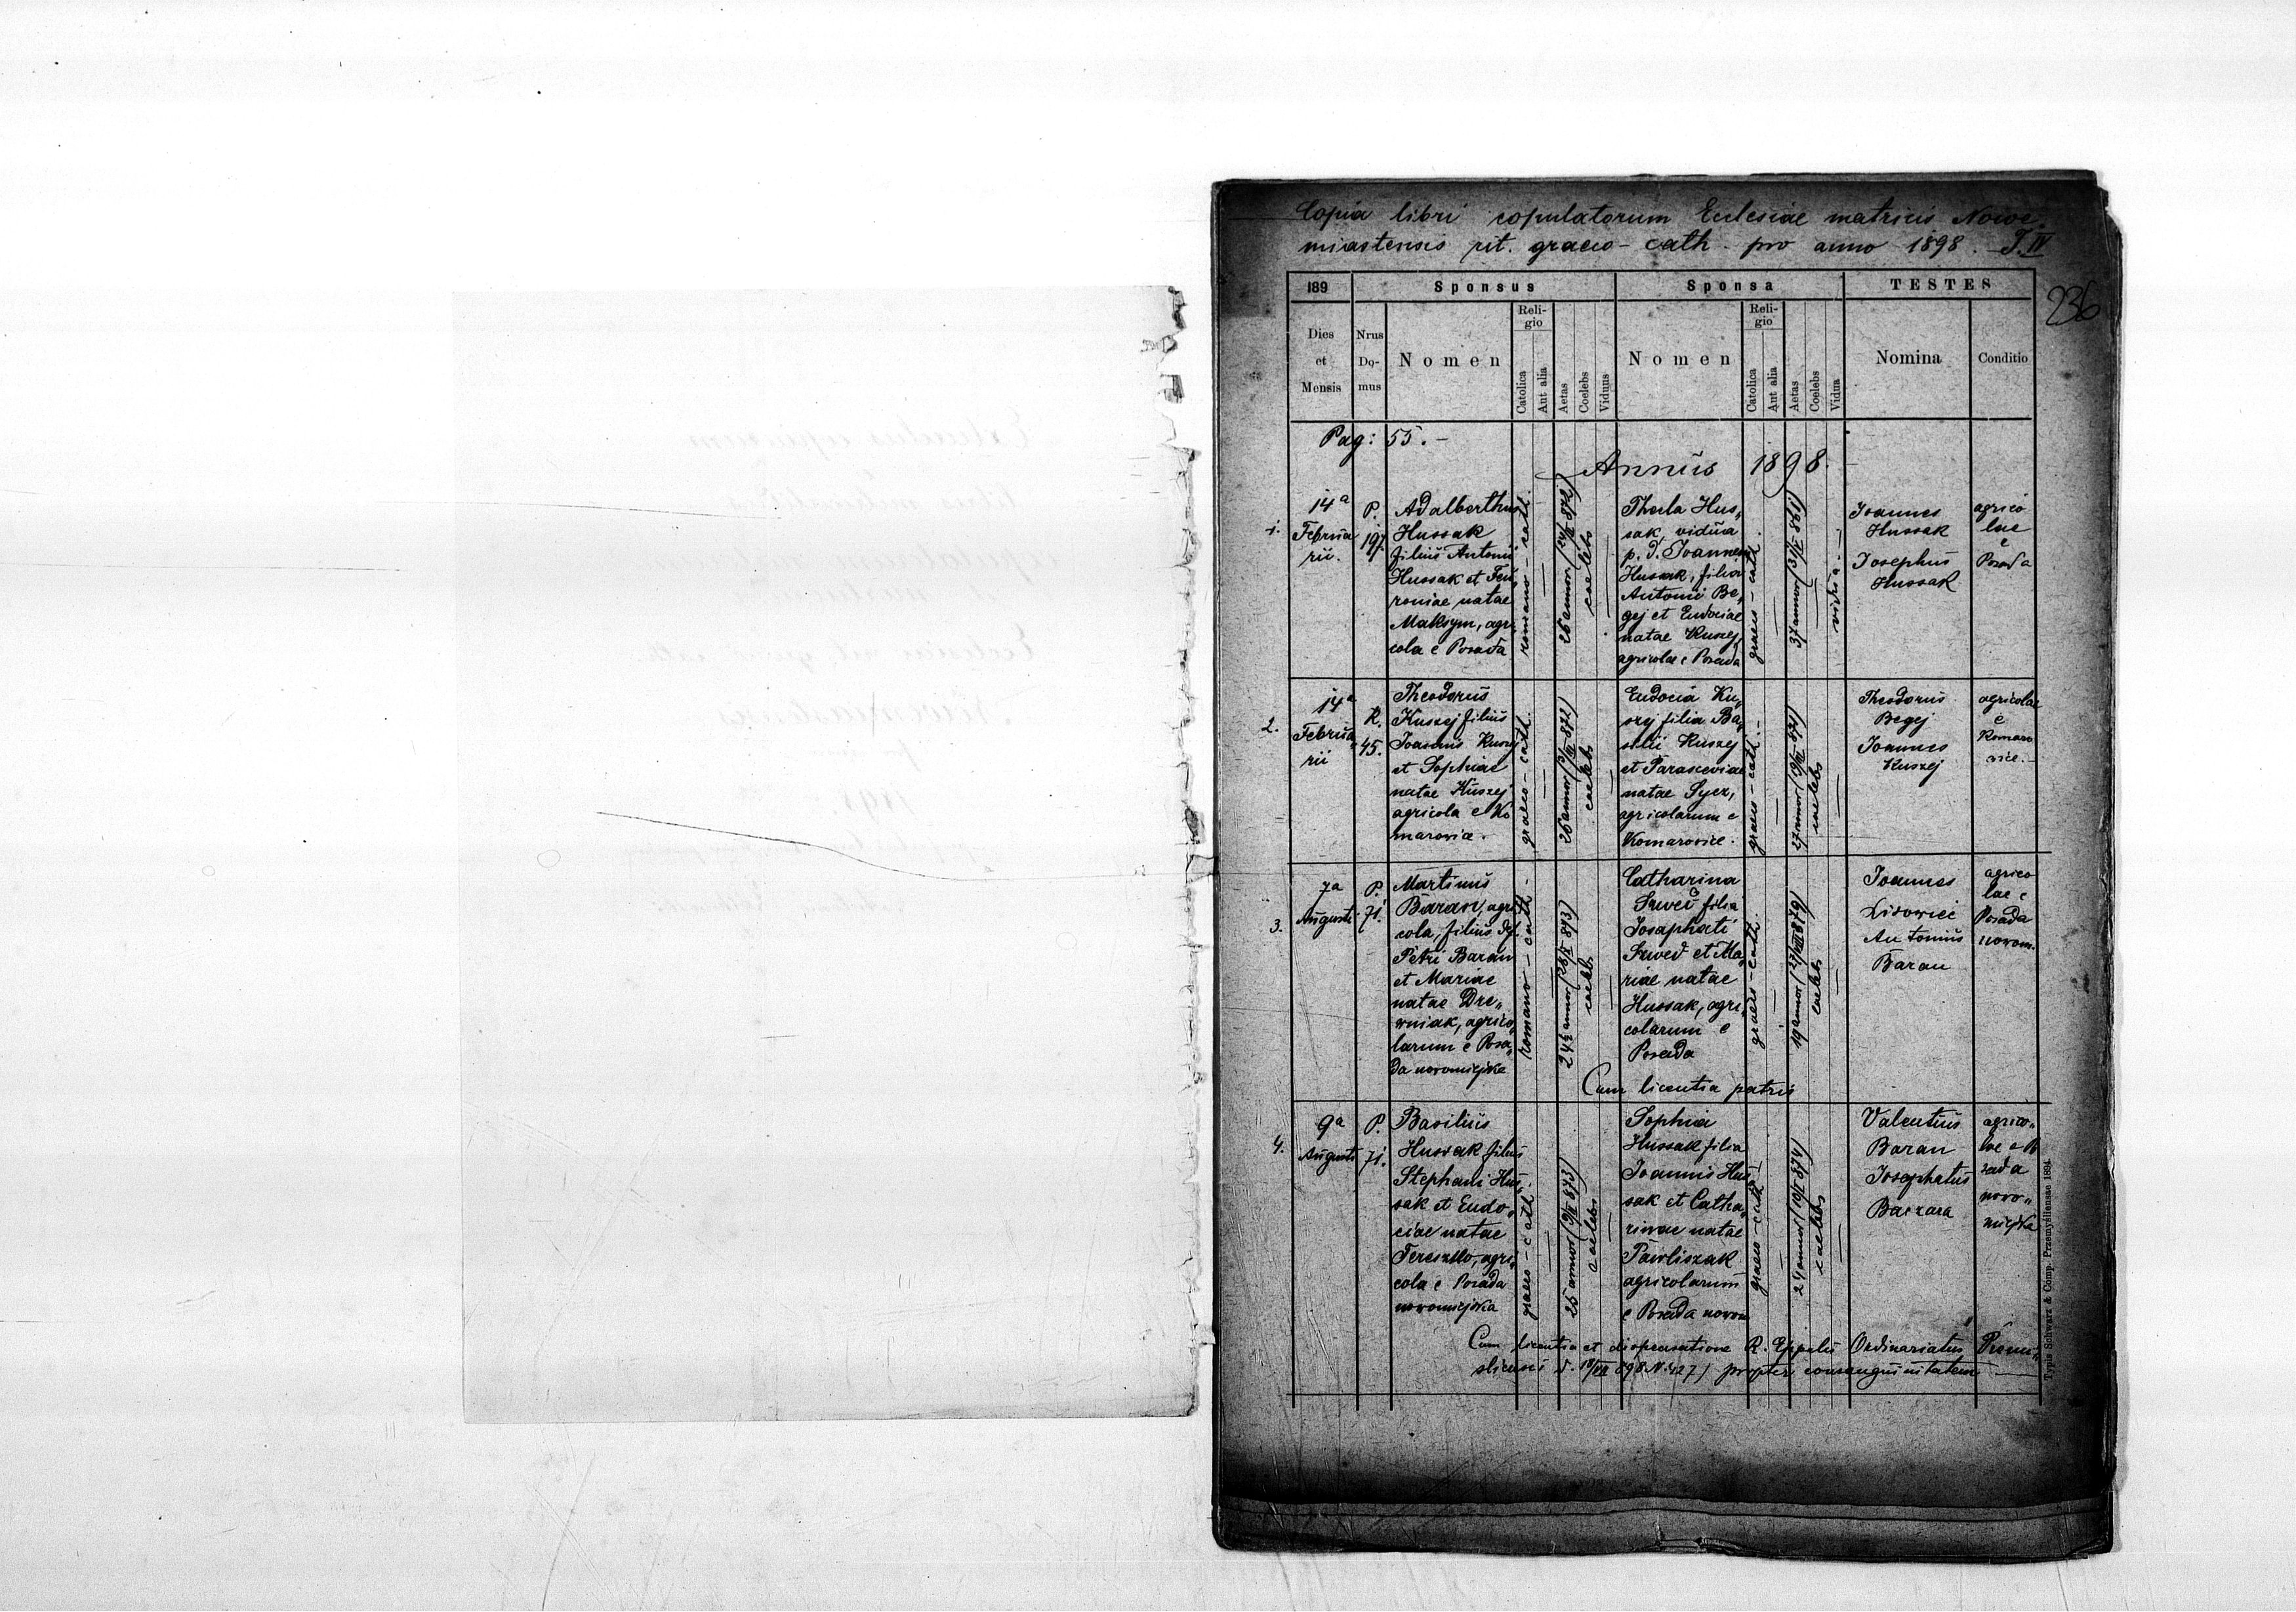 Copia libri copulatorum Ecclesiae matricis Nowo
miastensis rit. graeco-cath. pro anno 1898. T. IV
236
189
Sponsus
Sponsa
TESTES
Dies
et
Mensis
Nrus
Do-
mus
Nomen
Reli-
gio
Catolica
Aut alia
Aetas
Coelebs
Viduus
Nomen
Reli-
gio
Catolica
Aut alia
Aetas
Coelebs
Vidua
Nomina
Conditio
Pag: 55.-
Annus 1898.
1.
14a
Februa
rii.
P.
197.
Adalberthus
Hussak
filius Antonii
Hussak et Feu
roniae natae
Maksym, agri
cola e Posada
romano-cath.
26 annor
coelebs
Thecla Hus„
sak, vidua
p. d. Joannem
Hussak, filia
Antonii Be„
gej et Eudociae
natae Kuszej
agricolae e Posada
graeco-cath.
37 annor
vidua
Joannes
Hussak
Josephus
Hussak
agrico
lae
e
Posada
2.
14a
Februa
rii
K.
45.
Theodorus
Kuszej filius
Joannis Kuszej
et Sophiae
natae Kuszej
agricola e Ko
marovice.
graeco-cath.
26 annor
coelebs
Eudocia Ku„
szej filia Ba„
silii Kuszej
et Parasceviae
natae Sycz,
agricolarum e
Komarovice.
graeco-cath.-
27 annor
coelebs
Theodorus
Begej
Joannes
Kuszej
agricolae
e
Komaro
vice.-
3.
7a
Augusti
P.
71.
Martinus
Baran, agri
cola, filius df.
Petri Baran
et Mariae
natae Dre„
wniak, agrico„
larum e Posa„
da novomiejska
romano-cath-
24½ annor
coelebs
Catharina
Szwed filia
Josaphati
Szwed et Ma„
riae natae
Hussak, agri„
colarum e
Posada
graeco-cath.
19 annor
coelebs
Joannes
Lisowiec
Antonius
Baran
agrico
lae e
Posada
novom.
Cum licentia patris
4.
9a
Augusti
P.
71.
Basilius
Hussak filius
Stephani Hus„
sak et Eudo„
ciae natae
Tereszko, agri„
cola e Posada
novomiejska
graeco-cath.
25 annor
coelebs
Sophia
Hussak filia
Joannis Hus
sak et Catha„
rinae natae
Pawliszak
agricolarum
e Posada novom
graeco-cath-
24 annor
coelebs
Valentius
Baran
Josephatus
Baczara
agrico„
lae e Po
sada
novo„
miejska
Cum licentia et dispensatione R. Eppalis Ordinariatus Premi„
sliensis d. 18/VII 898 N. 4271 propter consanguinitatem
Typis Schwarz & Comp. Przemysliensae 1894.